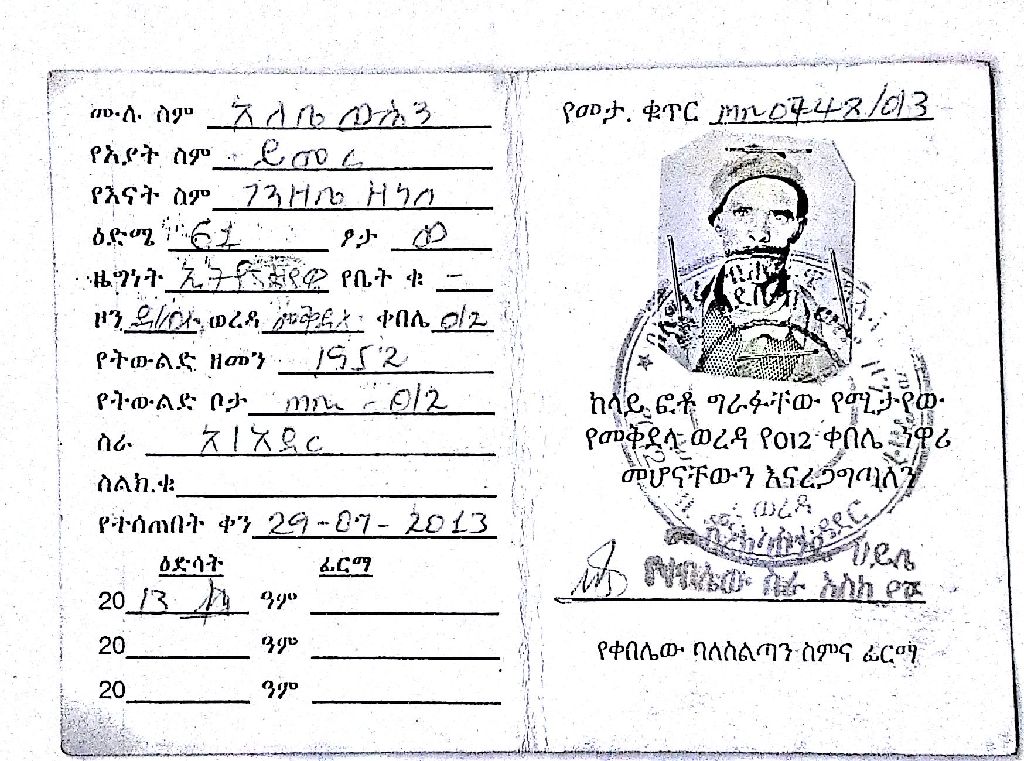 ሙሉ ስም አለቤ ወሌን
የአያት ስም ይመር
የእናት ስም ገንዘቤ ዘነበ
ዕድሜ 61 ፆታ ወ
ዜግነት ኢትዮጵያዊ የቤት ቁ -
ዞን ደ/ወሎ ወረዳ መቅደላ ቀበሌ 012
የትውልድ ዘመን 1952
የትውልድ ቦታ - 012
ስራ አ/አደር
ስልክ.ቁ
የተሰጠበት ቀን 29-07-2013
ዕድሳት ፊርማ
20 13 ዓም
20 ዓም
20 ዓም
የመታ. ቁጥር /013
ከላይ ፎቶ ግራፋቸው የሚታየው
የመቅደላ ወረዳ የ012 ቀበሌ ነዋሪ
መሆናቸውን እናረጋግጣለን
ወረዳ
ሀይሌ
የቀበሌው ስራ አስኪያጅ
የቀበሌው ባለስልጣን ስምና ፊርማ